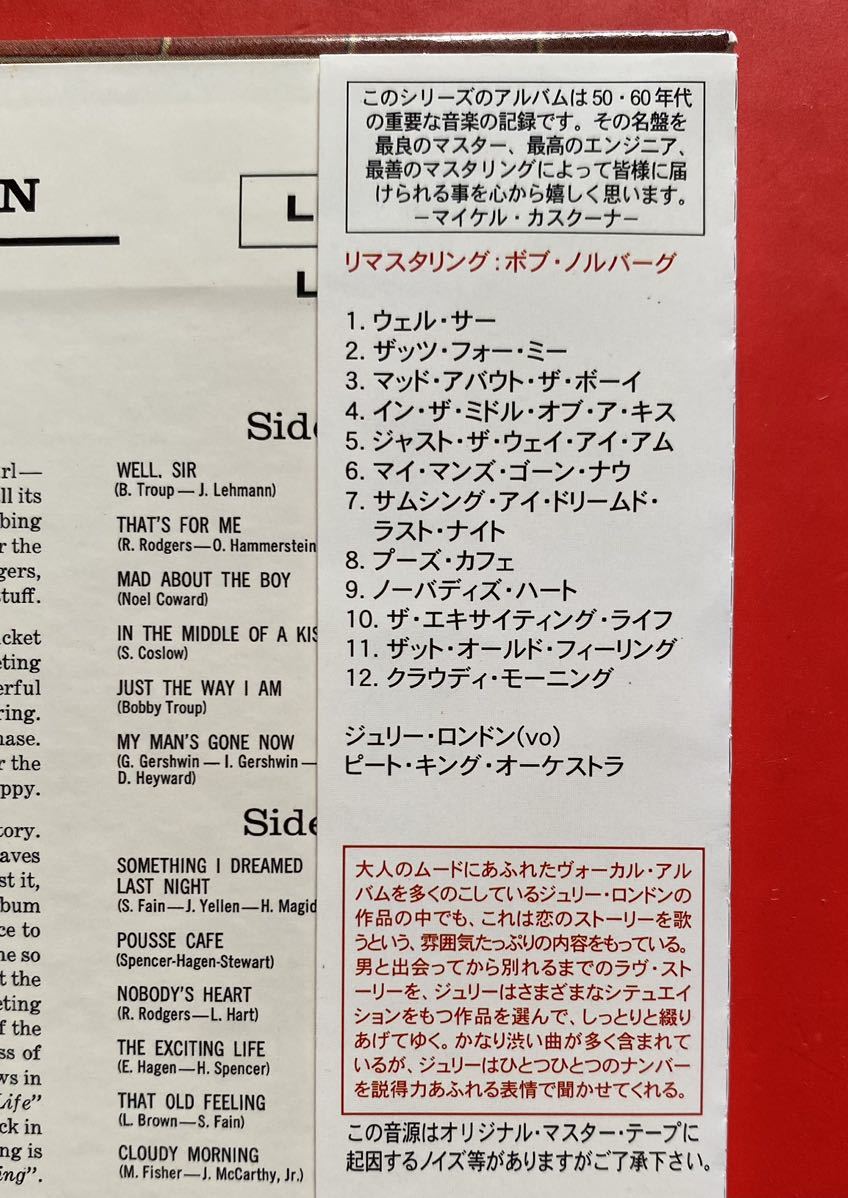 N
L
L
rl—
ll its
bing
r the
gers,
stuff.
cket
eting
erful
ring.
hase.
r the
ppy.
tory.
aves
st it,
bum
ce to
ne so
t the
eting
f the
ss of
ws in
Life"
ck in
ng is
ing".
Side
WELL, SIR
(B. Troup — J. Lehmann)
THAT'S FOR ME
(R. Rodgers—O. Hammerstein
MAD ABOUT THE BOY
(Noel Coward)
IN THE MIDDLE OF A KIS
(S. Coslow)
JUST THE WAY I AM
(Bobby Troup)
MY MAN'S GONE NOW
(G. Gershwin — I. Gershwin —
D. Heyward)
Side
SOMETHING I DREAMED
LAST NIGHT
(S. Fain—J. Yellen—H. Magid
POUSSE CAFE
(Spencer-Hagen-Stewart)
NOBODY'S HEART
(R. Rodgers—L. Hart)
THE EXCITING LIFE
(E. Hagen—H. Spencer)
THAT OLD FEELING
(L. Brown—S. Fain)
CLOUDY MORNING
(M. Fisher—J. McCarthy, Jr.)
このシリーズのアルバムは50・60年代
の重要な音楽の記録です。その名盤を
最良のマスター、最高のエンジニア、
最善のマスタリングによって皆様に届
けられる事を心から嬉しく思います。
−マイケル・カスクーナ−
リマスタリング：ボブ・ノルバーグ
1. ウェル・サー
2. ザッツ・フォー・ミー
3. マッド・アバウト・ザ・ボーイ
4. イン・ザ・ミドル・オブ・ア・キス
5. ジャスト・ザ・ウェイ・アイ・アム
6. マイ・マンズ・ゴーン・ナウ
7. サムシング・アイ・ドリームド・
ラスト・ナイト
8. プーズ・カフェ
9. ノーバディズ・ハート
10. ザ・エキサイティング・ライフ
11. ザット・オールド・フィーリング
12. クラウディ・モーニング
ジュリー・ロンドン(vo)
ピート・キング・オーケストラ
大人のムードにあふれたヴォーカル・アル
バムを多くのこしているジュリー・ロンドンの
作品の中でも、これは恋のストーリーを歌
うという、雰囲気たっぷりの内容をもっている。
男と出会ってから別れるまでのラヴ・スト
ーリーを、ジュリーはさまざまなシテュエイ
ションをもつ作品を選んで、しっとりと綴り
あげてゆく。かなり渋い曲が多く含まれて
いるが、ジュリーはひとつひとつのナンバー
を説得力あふれる表情で聞かせてくれる。
この音源はオリジナル・マスター・テープに
起因するノイズ等がありますがご了承下さい。